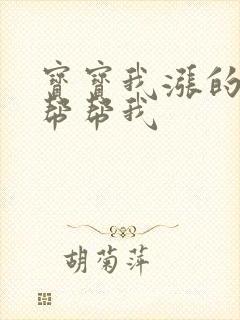 寶寶我漲的
幫幫我
胡菊萍